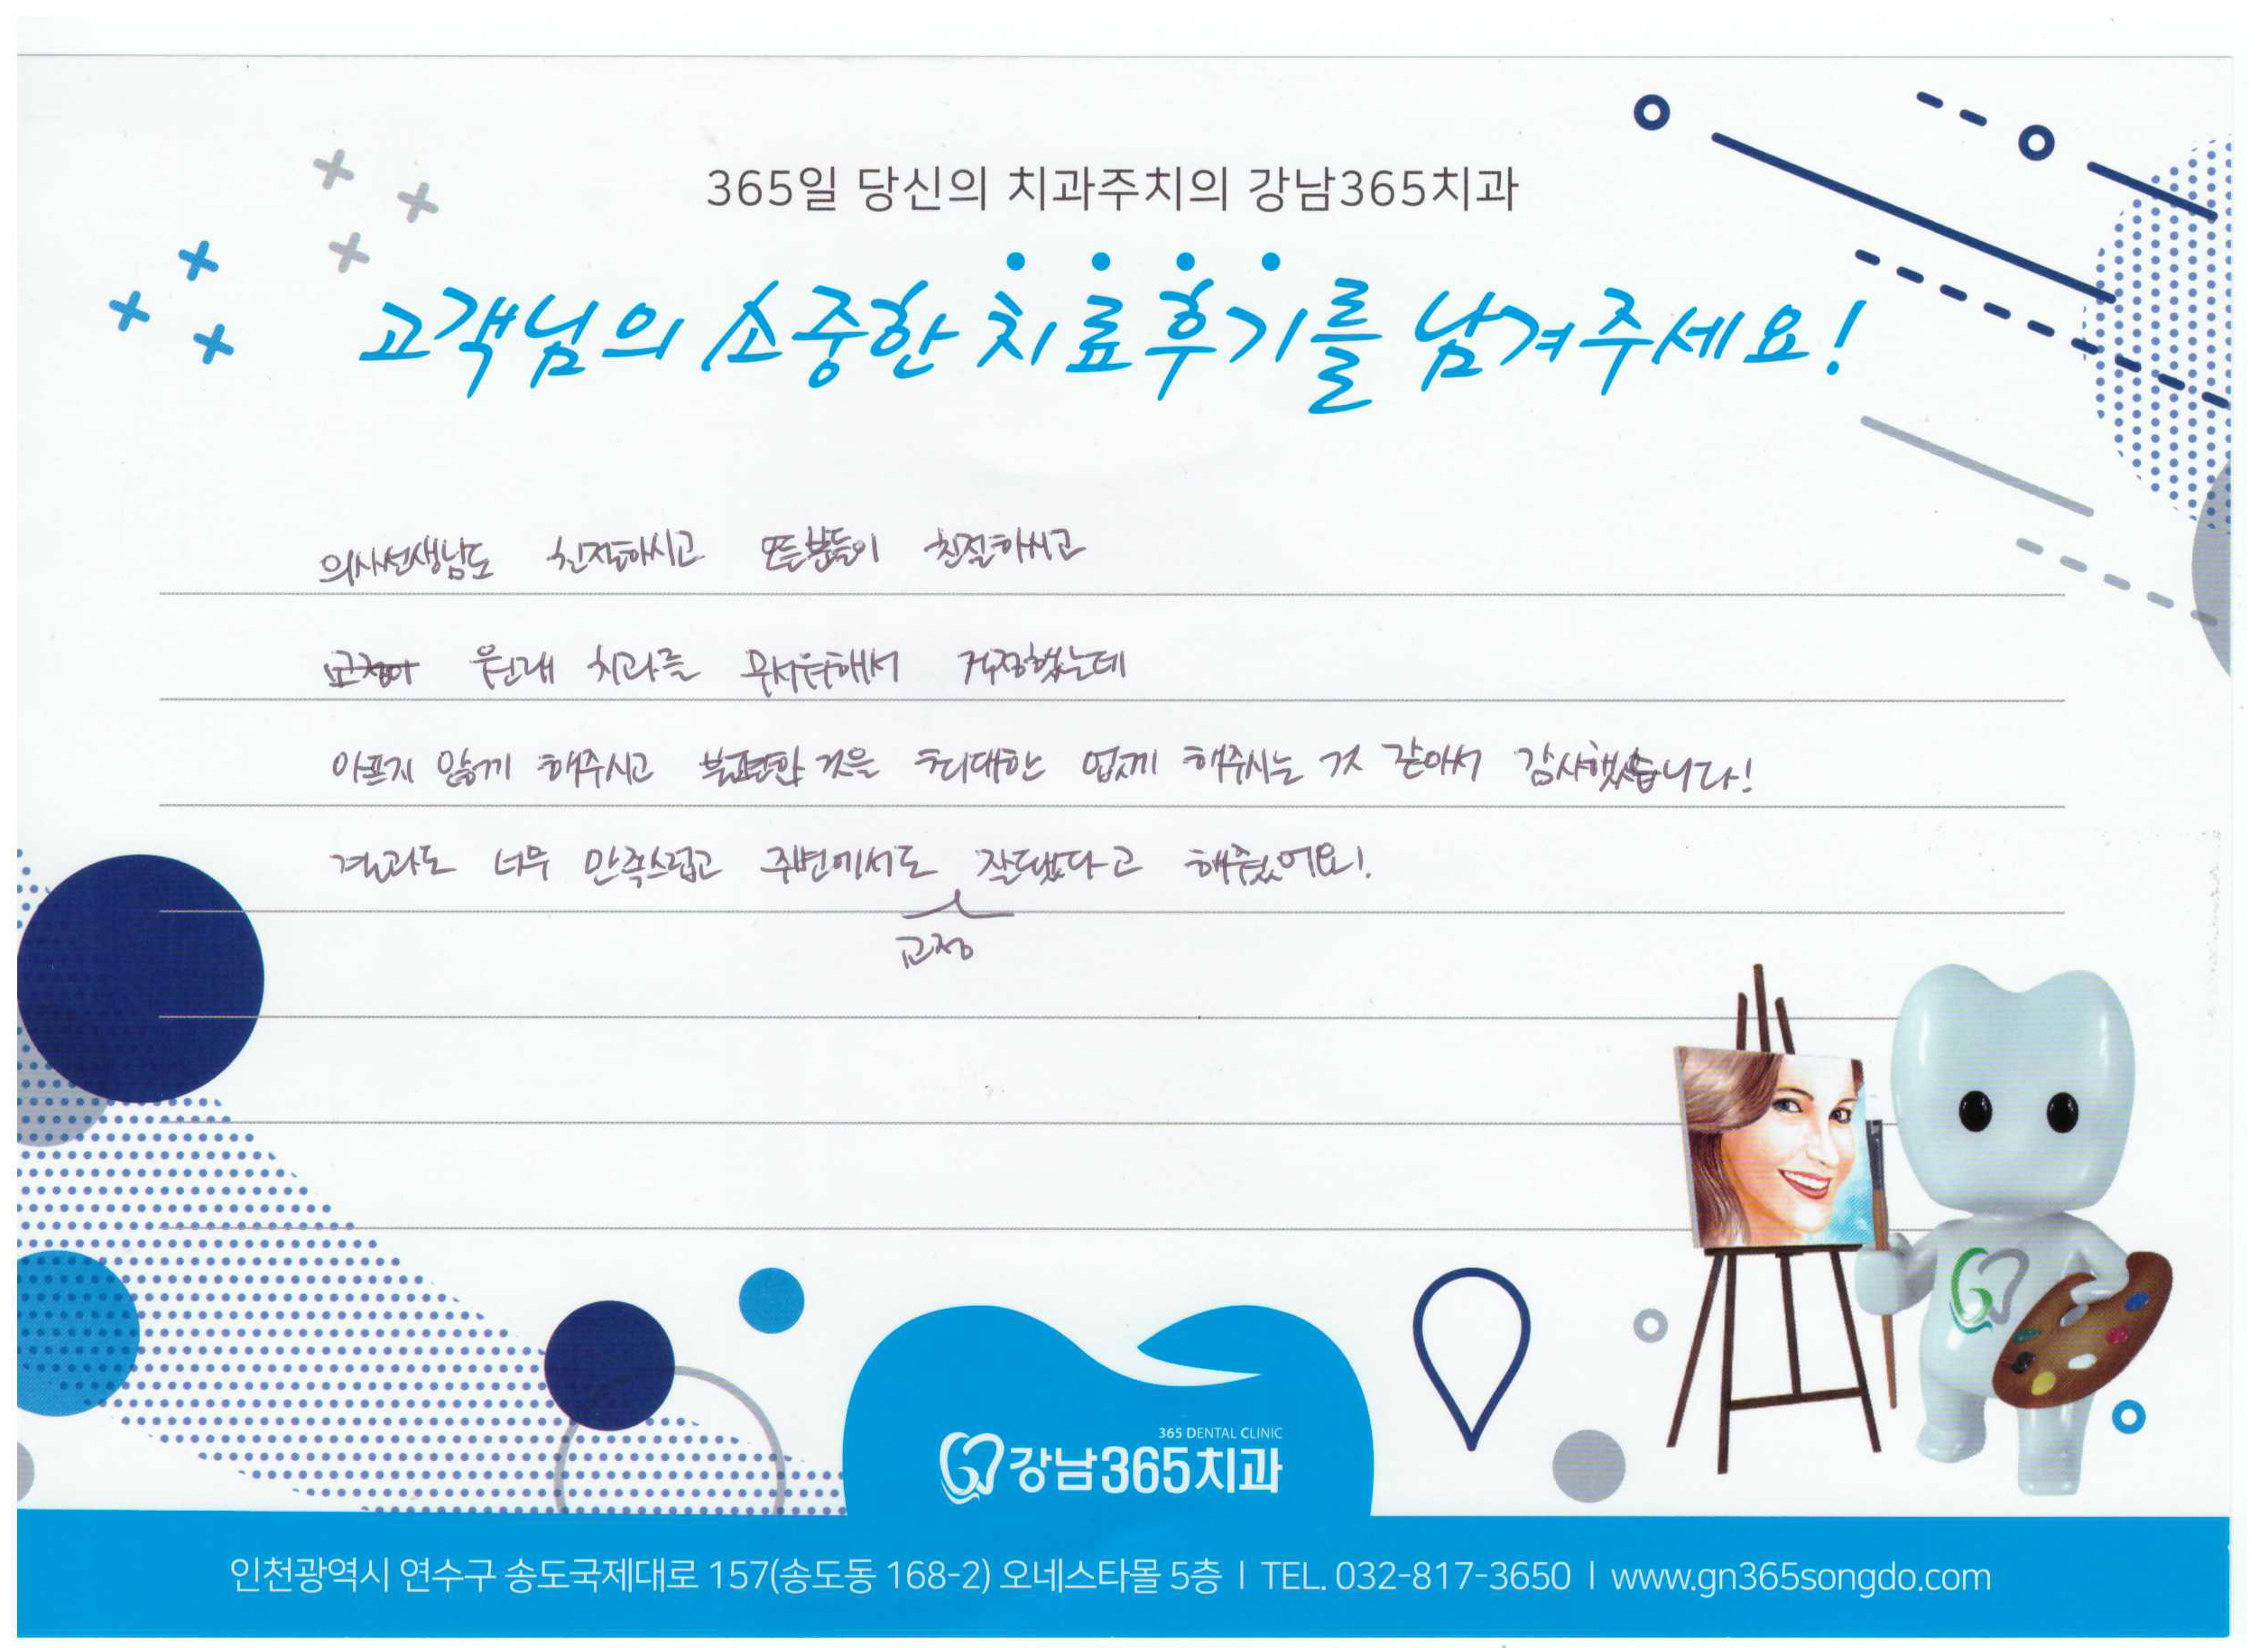 365일 당신의 치과주치의 강남365치과
고객님의 소중한 치료후기를 남겨주세요!
의사선생님도 친절하시고 모든분들이 친절하시고
원래 치과를 무서워해서 걱정했는데
아프지 않게 해주시고 불편한 것을 최대한 없게 해주시는 것 같아서 감사했습니다!
결과도 너무 만족스럽고 주변에서도 잘됐다고 해줬어요!
교정
365 DENTAL CLINIC
강남365치과
인천광역시 연수구 송도국제대로 157(송도동 168-2) 오네스타몰 5층 I TEL. 032-817-3650 I www.gn365songdo.com